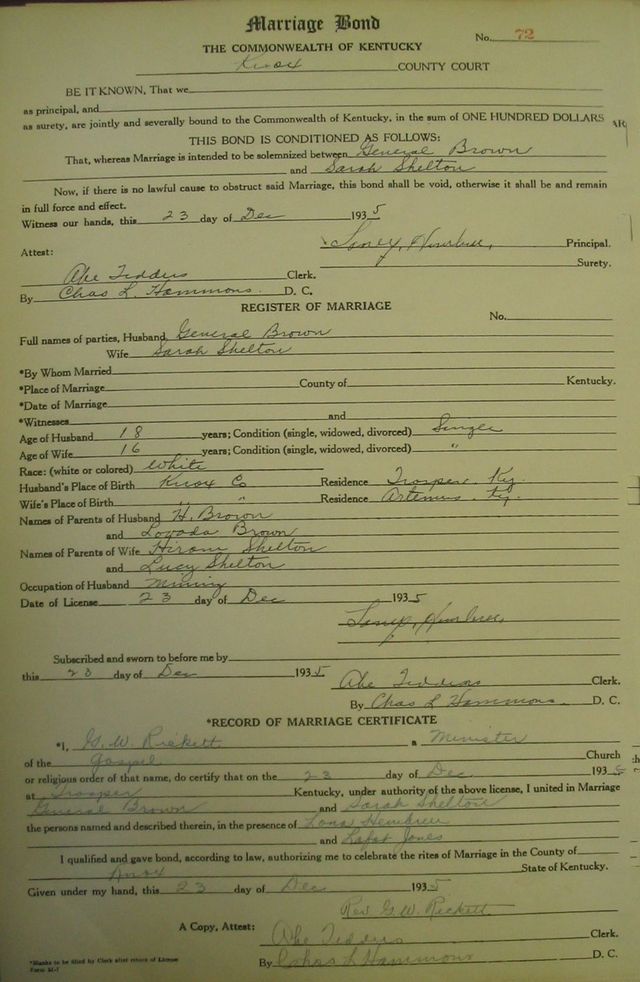 Marriage Bond
No. 72
THE COMMONWEALTH OF KENTUCKY
Knox COUNTY COURT
BE IT KNOWN, That we
as principal, and
as surety, are jointly and severally bound to the Commonwealth of Kentucky, in the sum of ONE HUNDRED DOLLARS
THIS BOND IS CONDITIONED AS FOLLOWS:
That, whereas Marriage is intended to be solemnized between General Brown
and Sarah Shelton
Now, if there is no lawful cause to obstruct said Marriage, this bond shall be void, otherwise it shall be and remain
in full force and effect.
Witness our hands, this 23 day of Dec 1935
Principal.
Attest:
Surety.
Abe Tedders Clerk.
By Chas L. Hammons. D. C.
REGISTER OF MARRIAGE
No.
Full names of parties, Husband General Brown
Wife Sarah Shelton
*By Whom Married
*Place of Marriage County of Kentucky.
*Date of Marriage
*Witnesses and
Age of Husband 18 years; Condition (single, widowed, divorced) Single
Age of Wife 16 years; Condition (single, widowed, divorced) "
Race: (white or colored) White
Husband's Place of Birth Knox Co Residence Trosper. Ky.
Wife's Place of Birth " " Residence Artemus. Ky.
Names of Parents of Husband H. Brown
and Brown
Names of Parents of Wife Hiram Shelton
and Lucy Shelton
Occupation of Husband Mining
Date of License 23 day of Dec 1935
Subscribed and sworn to before me by
this 23 day of Dec 1935
Abe Tedders Clerk.
By Chas L Hammons. D. C.
*RECORD OF MARRIAGE CERTIFICATE
*I, G. W. Rickett a Minister
of the Gospel Church
or religious order of that name, do certify that on the 23 day of Dec 1935
at Trosper Kentucky, under authority of the above license, I united in Marriage
General Brown and Sarah Shelton
the persons named and described therein, in the presence of
and Jones
I qualified and gave bond, according to law, authorizing me to celebrate the rites of Marriage in the County of
Knox State of Kentucky.
Given under my hand, this 23 day of Dec 1935
Rev. G. W. Rickett
A Copy, Attest: Abe Tedders Clerk.
By Chas L Hammons D. C.
*Blanks to be filled by Clerk after return of License